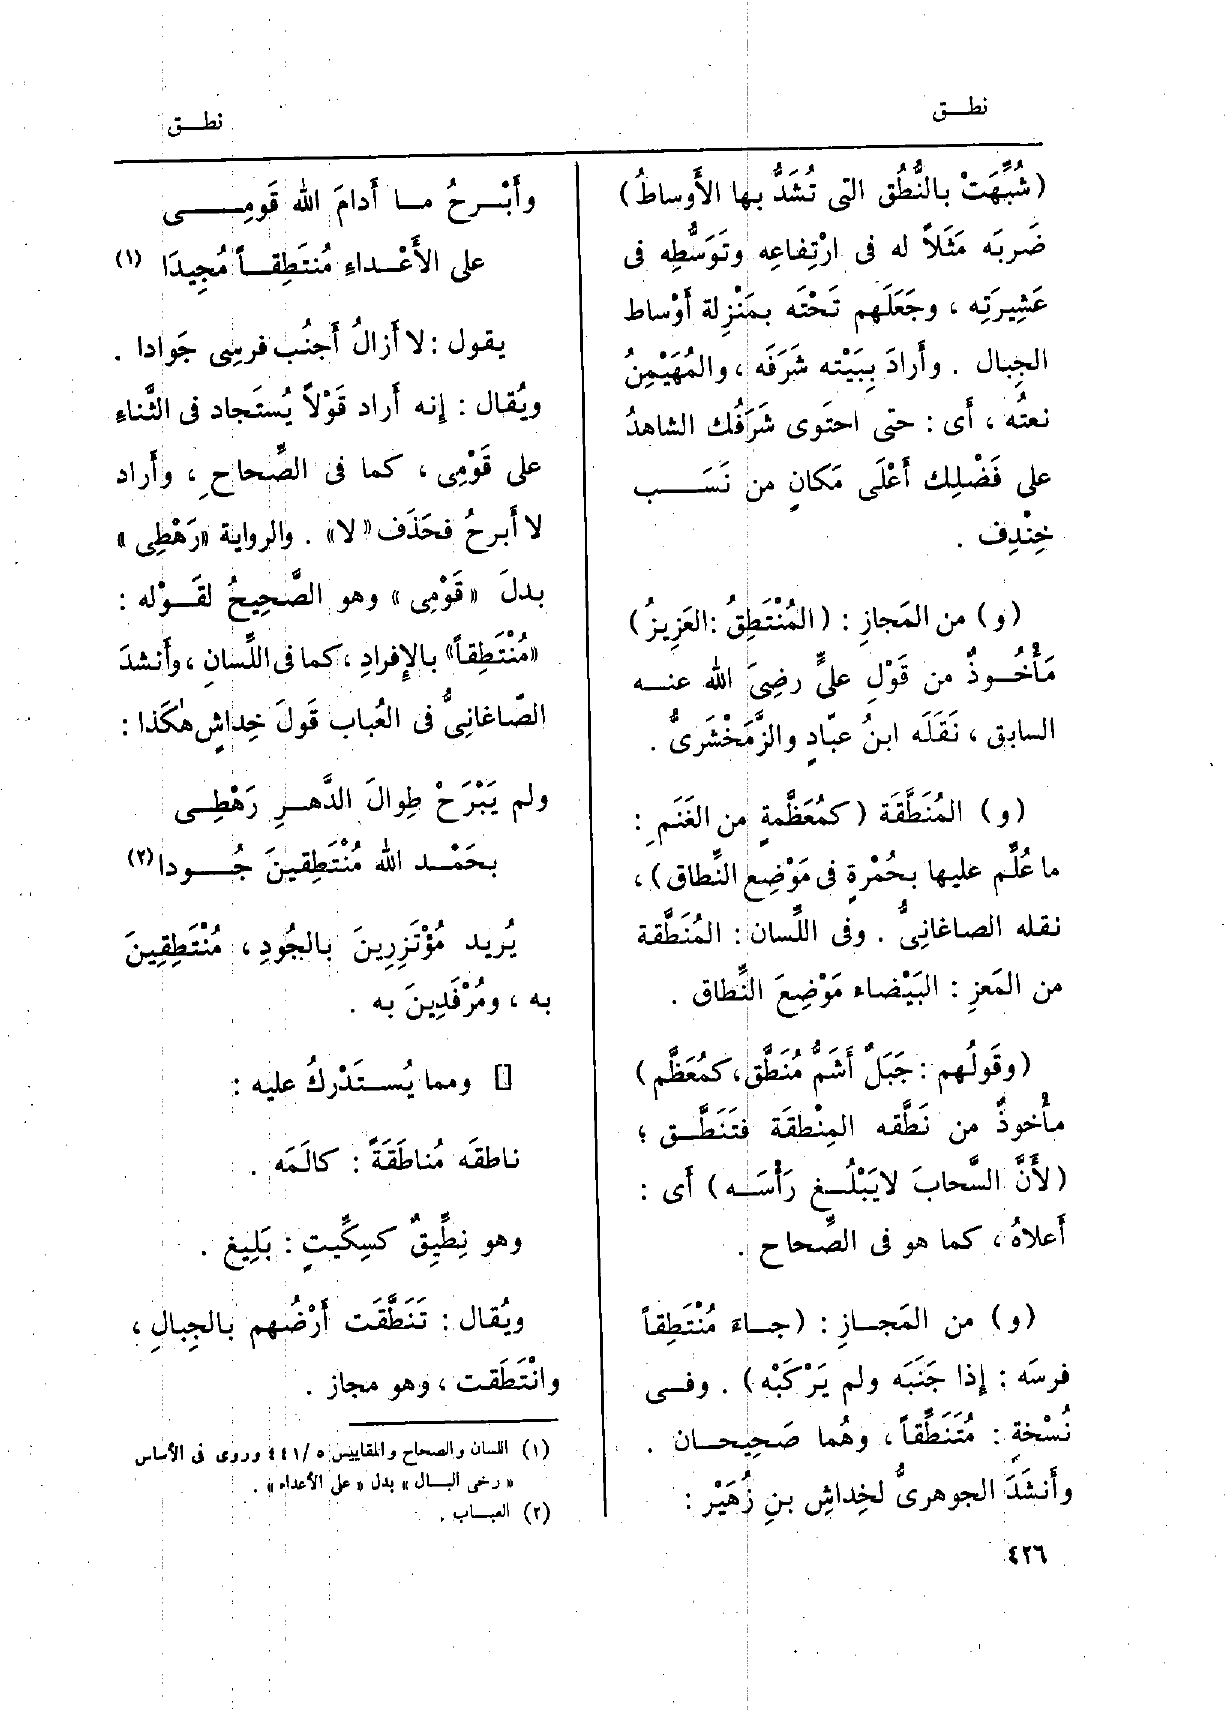 نطـــق
نطـــق
(شُبِّهَتْ بالنُّطُق التى تُشَدُّ بها الأَوساطُ)
ضَربَه مَثَلاً له فى ارْتِفاعِه وتَوَسُّطِه فى
عَشِيرَتِه ، وجَعَلَهم تَحْتَه بمَنْزِلة أَوْساط
الجِبال . وأَرادَ بِبَيْته شَرَفَه ، والمُهَيْمِنُ
نعتُه ، أَى : حتى احتَوى شَرَفُك الشاهدُ
على فَضْلِك أَعْلَى مَكانٍ من نَسَـــب
خِنْدِف .
(و) من المَجازِ : (المُنْتَطِقُ : العَزِيزُ)
مَأْخُــوذٌ من قَوْلِ علىٍّ رضِىَ الله عنــه
السابق ، نَقَلَه ابنُ عبّادٍ والزَّمَخْشَرىُّ .
(و) المُنَطَّقَة (كمُعَظَّمةٍ من الغَنَمِ :
ما عُلِّم عليها بحُمْرةٍ فى مَوْضِعِ النِّطاق) ،
نقله الصاغانِىُّ . وفى اللِّسان : المُنَطَّقة
من المَعزِ : البَيْضاء مَوْضِعَ النِّطاق .
(وقَولُهم : جَبَلٌ أَشَمُّ مُنَطَّق ، كمُعَظَّم)
مأْخوذٌ من نَطَّقه المِنْطقَة فتَنَطَّــق ؛
(لأَنَّ السَّحابَ لايَبْلُــغ رَأْسَــه) أَى :
أَعلاهُ ، كما هو فى الصِّحاح .
(و) من المَجــازِ : (جــاءَ مُنْتَطِقاً
فرسَه : إِذا جَنَبَه ولم يَرْكَبْه) . وفــى
نُسْخةٍ : مُتَنَطِّقاً ، وهُما صَحِيحــان .
وأَنشَدَ الجوهرىُّ لخِداشِ بنِ زُهَيْر :
٤٢٦
وأَبْــرحُ مــا أَدامَ الله قَومِــــى
على الأَعْــداءِ مُنتَطِقــاً مُجِيدَا (١)
يقول : لا أَزالُ أَجنُب فرسِى جَوادا .
ويُقال : إِنه أَراد قَوْلاً يُستَجاد فى الثَّناءِ
على قَوْمِى ، كما فى الصِّحاحِ ، وأَراد
لا أَبرحُ فحَذَف «لا» . والرواية «رَهْطِى»
بدلَ «قَوْمِى» وهو الصَّحِيحُ لقَــوْله :
«مُنْتَطِقاً» بالإِفرادِ ، كما فى اللِّسانِ ، وأَنشدَ
الصّاغانِىُّ فى العُباب قَولَ خِداشٍ هٰكَذا :
ولم يَبْرَحْ طِوالَ الدَّهــرِ رَهْطِــى
بحَمْــد الله مُنْتَطِقينَ جُــودا (٢)
يُريد مُؤْتَزِرِينَ بالجُودِ ، مُنْتَطِقِينَ
به ، ومُرْفَدِينَ به .
[] ومما يُســتَدْركُ عليه :
ناطقَه مُناطَقَةً : كالَمَه .
وهو نِطِّيقٌ كسِكِّيتٍ : بَلِيغ .
ويُقال : تَنَطَّقَت أَرْضُهم بالجِبالِ ،
وانْتَطَقت ، وهو مجاز .
(١) اللسان والصحاح والمقاييس ٥ /٤٤١ وروى فى الأساس
« رخى البــال » بدل « على الأعداء » .
(٢) العبــاب .